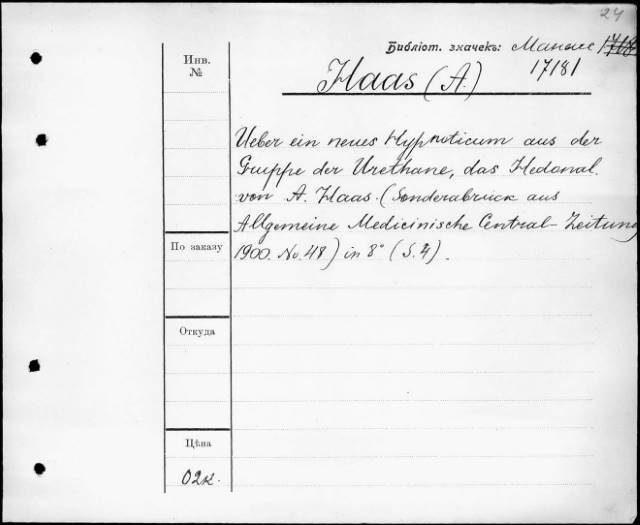 24
Библіот. значекъ:
17181
Инв.
№
Haas (A.)
Ueber ein neues Hypnoticum aus der
Gruppe der Urethane, das Hedonal.
von A. Haas. (Sonderabruck aus
Allgemeine Medicinische Central-Zeitung
1900. No. 48) in 8° (S. 4).
По заказу
Откуда
Цѣна
02к.